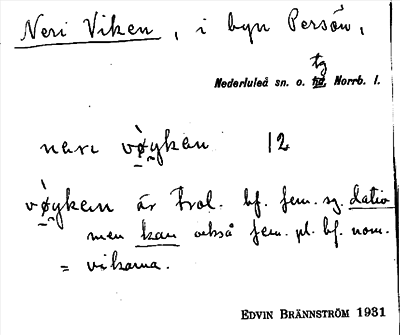 Neri Viken, i byn Persön,
tg
Nederluleå sn. o. hd. Norrb. l.
neri vøyken 12
vøyken är trol. bf. fem. sg. dativ
men kan också fem. pl. bf. nom.
= vikarna.
EDVIN BRÄNNSTRÖM 1931